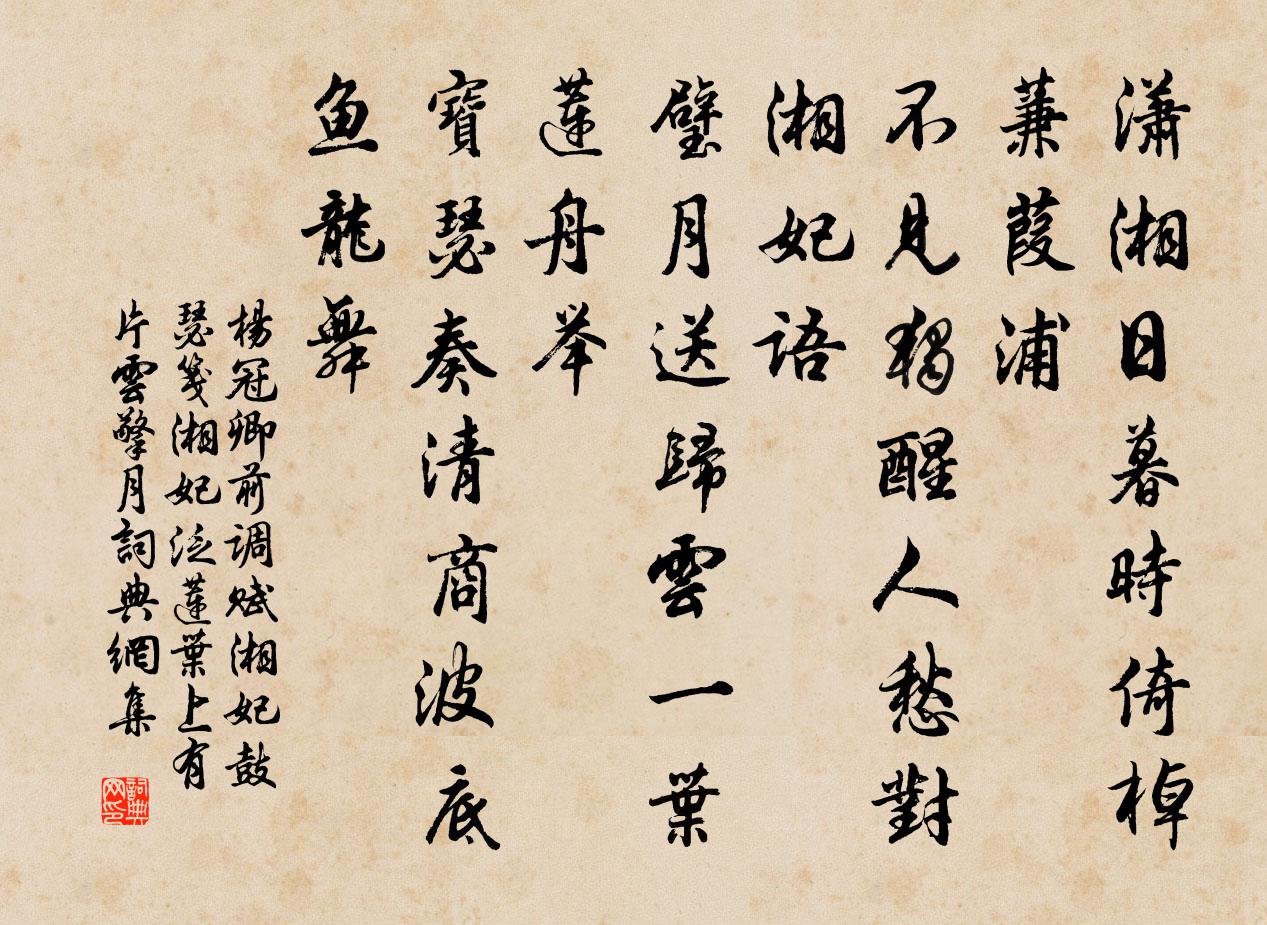 瀟湘日暮時倚棹
蒹葭浦
不見獨醒人愁對
湘妃語
璧月送歸雲一葉
蓮舟举
寶瑟奏清商波底
魚龍舞
楊冠卿前调赋湘妃鼓
瑟箋湘妃泛蓮葉上有
片雲擎月詞典網集
詞典
网印